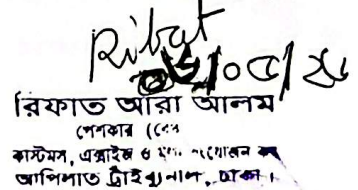 Ribat
০৬/০৫/২৫
রিফাত আরা আলম
পেশকার
কাস্টমস, এক্সাইজ ও
আপিলাত ট্রাইব্যুনাল, ঢাকা।